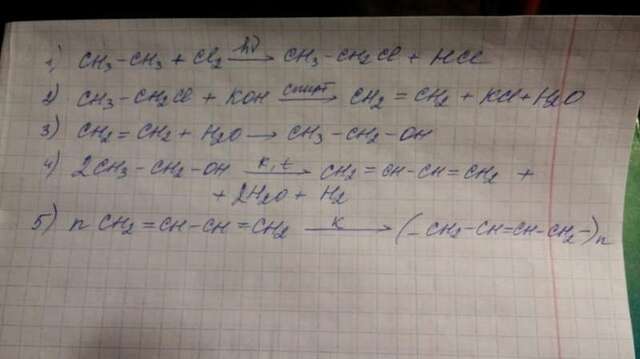 1) CH₃-CH₃ + Cl₂ hν→ CH₃-CH₂Cl + HCl
2) CH₃-CH₂Cl + KOH спирт→ CH₂=CH₂ + KCl + H₂O
3) CH₂=CH₂ + H₂O → CH₃-CH₂-OH
4) 2CH₃-CH₂-OH к,t→ CH₂=CH-CH=CH₂ +
+ 2H₂O + H₂
5) n CH₂=CH-CH=CH₂ к→ (-CH₂-CH=CH-CH₂-)n